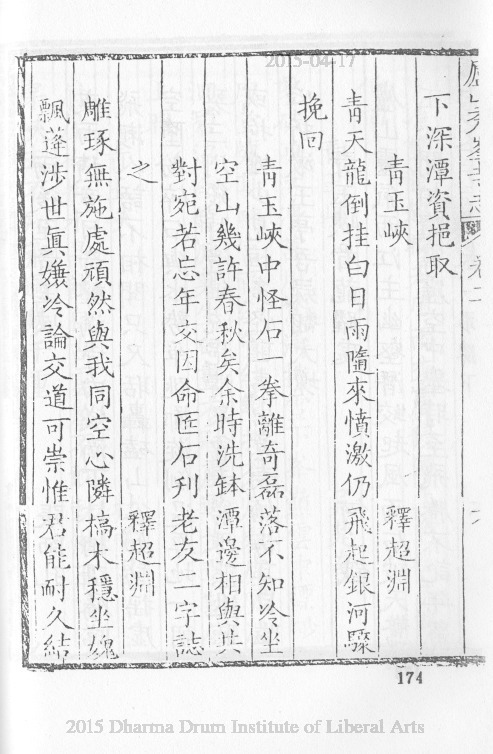 2015-04-17
卷二
下深潭資挹取
青玉峽 釋超淵
青天龍倒挂白日雨隨來憤激仍飛起銀河驟
挽回
青玉峽中怪石一拳離奇磊落不知冷坐
空山幾許春秋矣余時洗鉢潭邊相與共
對宛若忘年交因命匠石刋老友二字誌
之 釋超淵
雕琢無施處頑然與我同空心隣槁木穩坐媿
飄蓬涉世眞嫌冷論交道可崇惟君能耐久結
174
2015 Dharma Drum Institute of Liberal Arts